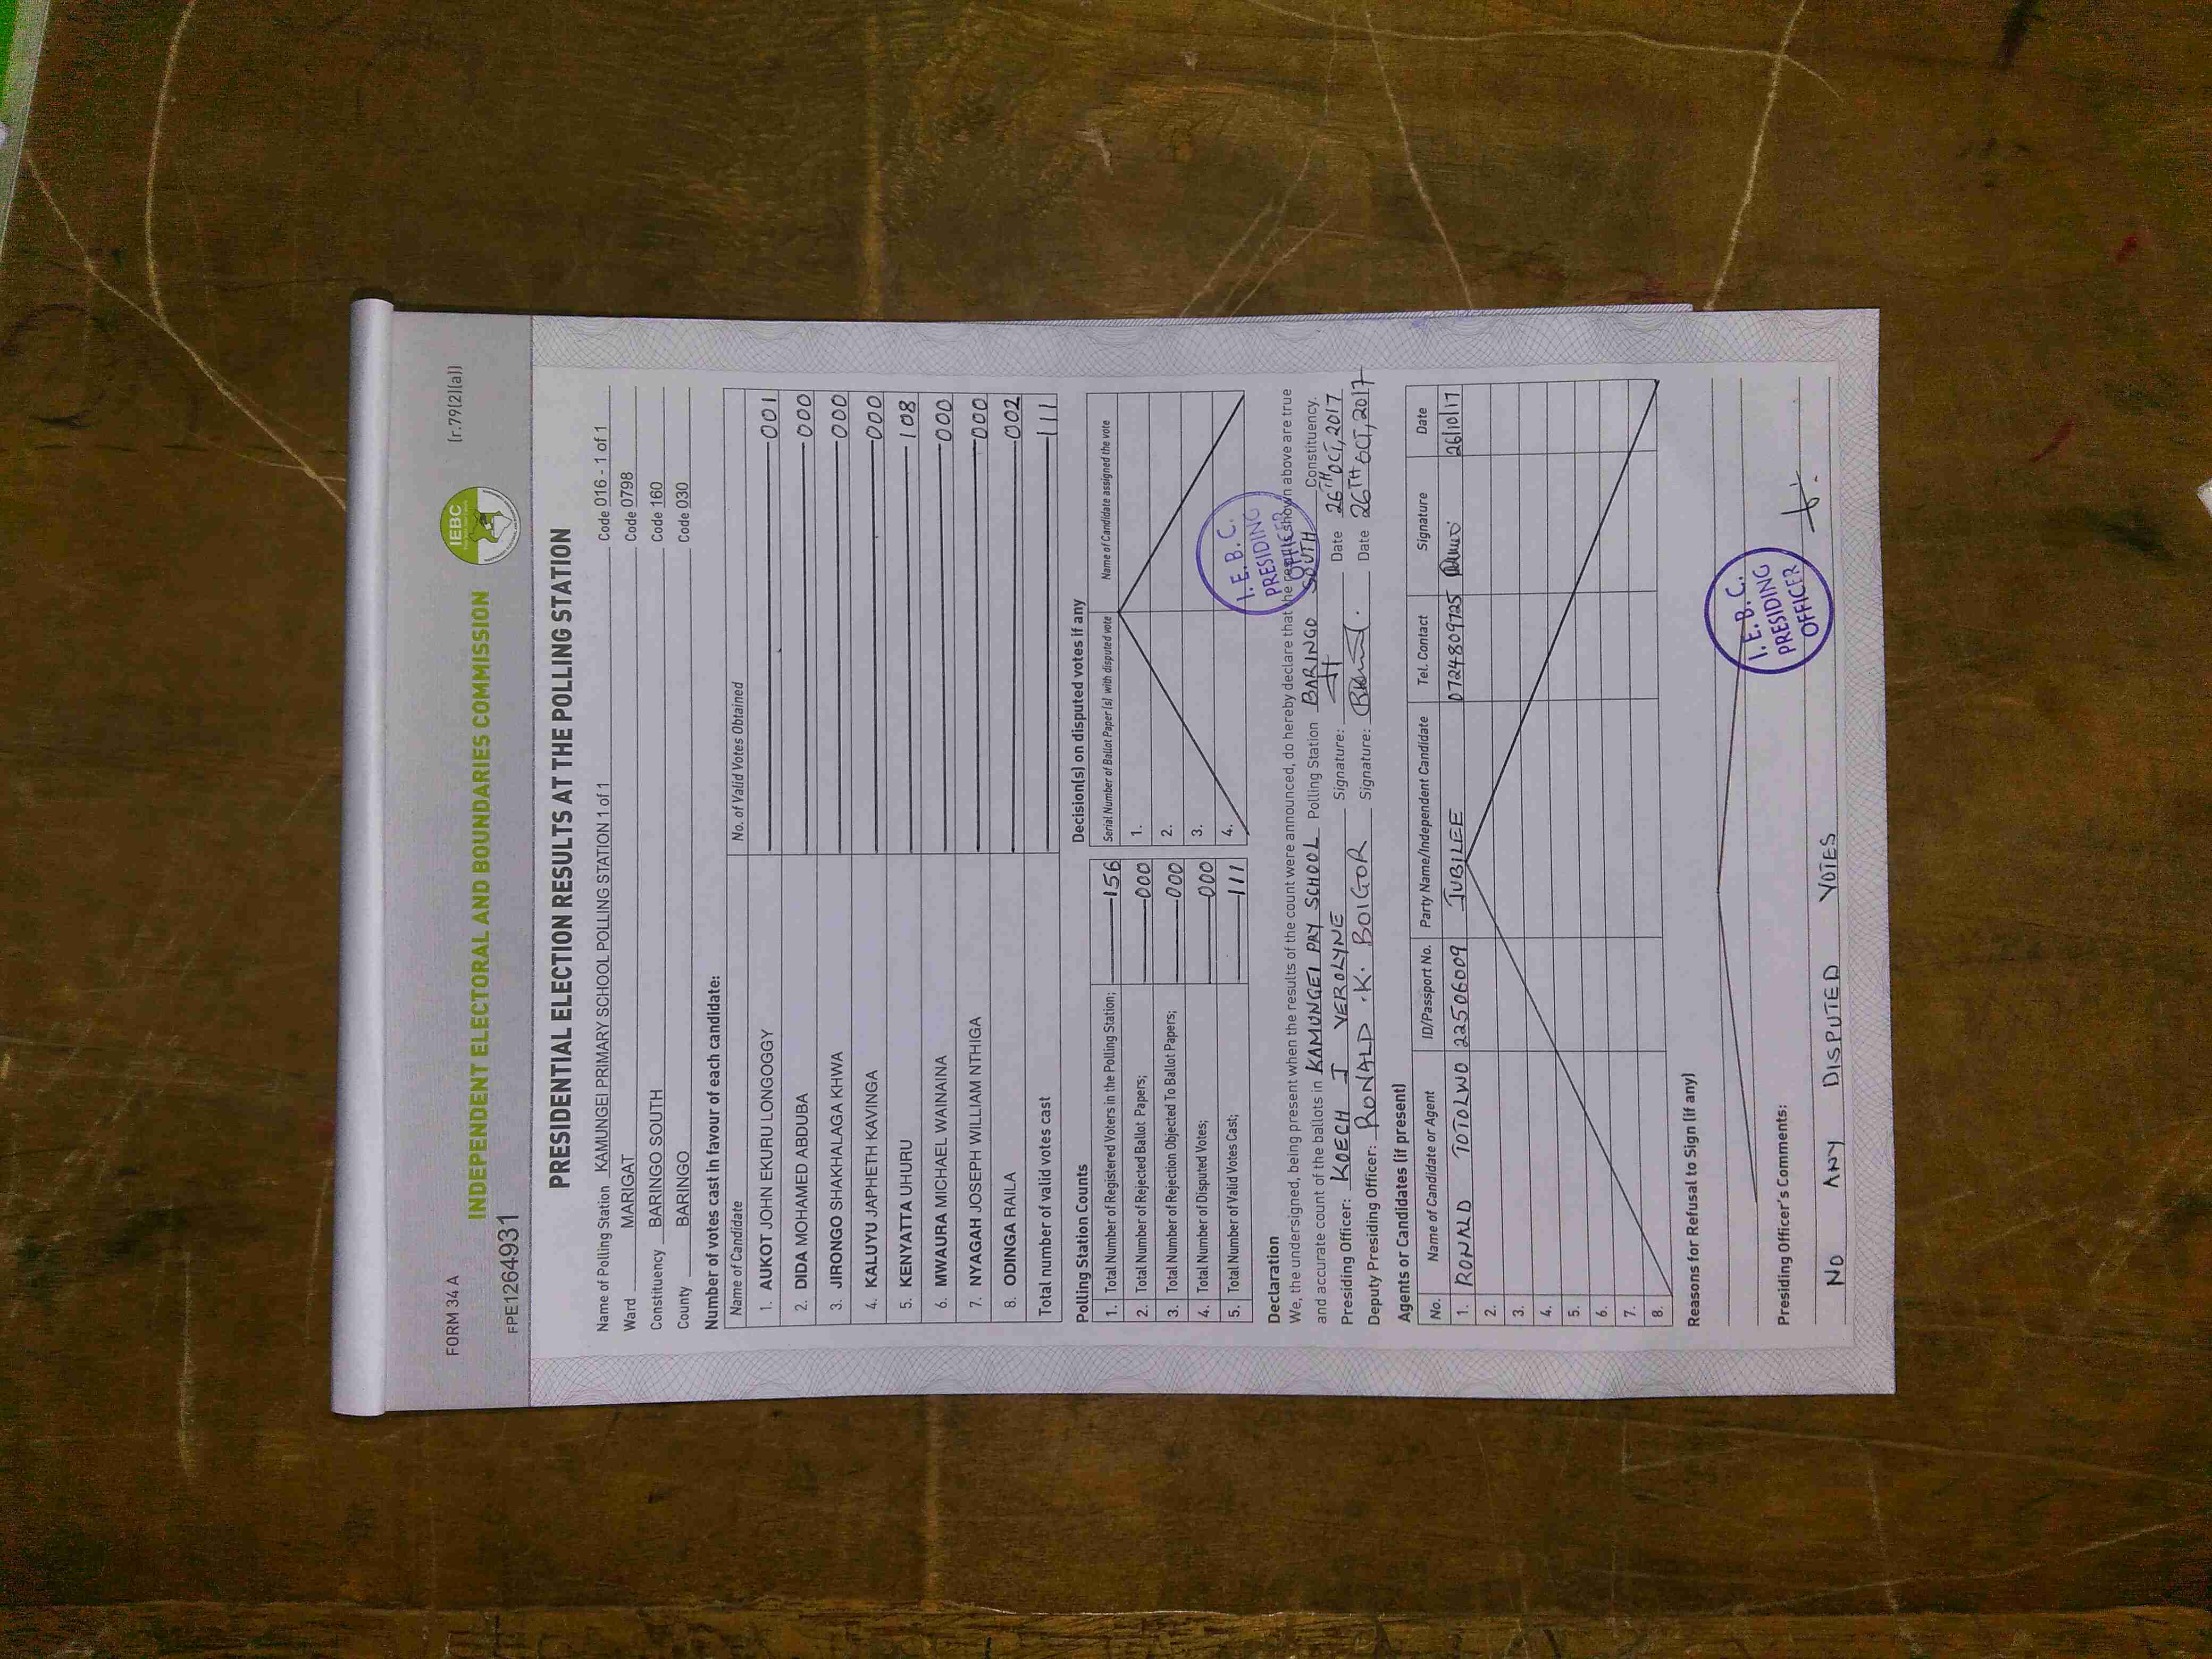 FORM 34 A
(r.79(2)(a))
INDEPENDENT ELECTORAL AND BOUNDARIES COMMISSION
IEBC
FPE1264931
PRESIDENTIAL ELECTION RESULTS AT THE POLLING STATION
Name of Polling Station KAMUNGEI PRIMARY SCHOOL POLLING STATION 1 of 1 Code 016 - 1 of 1
Ward MARIGAT Code 0798
Constituency BARINGO SOUTH Code 160
County BARINGO Code 030
Number of votes cast in favour of each candidate:
Name of Candidate No. of Valid Votes Obtained
1. AUKOT JOHN EKURU LONGOGGY 001
2. DIDA MOHAMED ABDUBA 000
3. JIRONGO SHAKHALAGA KHWA 000
4. KALUYU JAPHETH KAVINGA 000
5. KENYATTA UHURU 108
6. MWAURA MICHAEL WAINAINA 000
7. NYAGAH JOSEPH WILLIAM NTHIGA 000
8. ODINGA RAILA 002
Total number of valid votes cast 111
Polling Station Counts
1. Total Number of Registered Voters in the Polling Station; 156
2. Total Number of Rejected Ballot Papers; 000
3. Total Number of Rejection Objected To Ballot Papers; 000
4. Total Number of Disputed Votes; 000
5. Total Number of Valid Votes Cast; 111
Decision(s) on disputed votes if any
Serial Number of Ballot Paper (s) with disputed vote Name of Candidate assigned the vote
1.
2.
3.
4.
I.E.B.C.
PRESIDING
OFFICER
Declaration
We, the undersigned, being present when the results of the count were announced, do hereby declare that the results shown above are true
and accurate count of the ballots in KAMUNGEI PRY SCHOOL Polling Station BARINGO SOUTH Constituency.
Presiding Officer: KOECH J VEROLYNE Signature: Date 26TH OCT, 2017
Deputy Presiding Officer: RONALD .K. BOIGOR Signature: Date 26TH OCT, 2017
Agents or Candidates (if present)
No. Name of Candidate or Agent ID/Passport No. Party Name/Independent Candidate Tel. Contact Signature Date
1. RONALD TOTOLWO 22506009 JUBILEE 0724809725 26/10/17
2.
3.
4.
5.
6.
7.
8.
Reasons for Refusal to Sign (if any)
Presiding Officer's Comments:
I.E.B.C.
PRESIDING
OFFICER
NO ANY DISPUTED VOTES